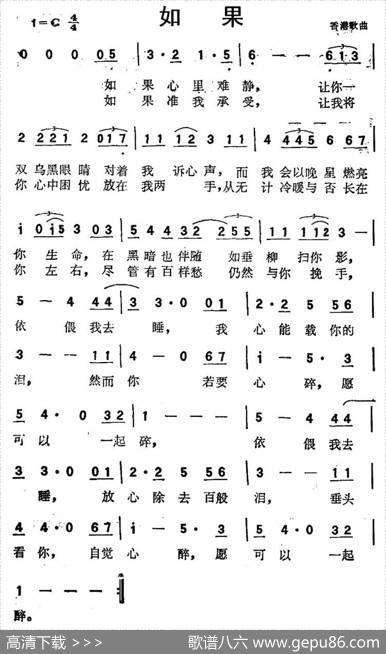 如果
1=C 4/4
香港歌曲
0 0 0 05 | 3·2 1·5 | 6 — — 613 |
如 果心里难静, 让你一
如 果准我承受, 让我将
2 221 2 017 | 11 12 3 34 | 4 445 6 667 |
双乌黑眼睛对着我诉心声,而我会以晚星燃亮
你心中困忧放在我两手,从无计冷暖与否长在
i 0i5 3 03 | 5 4432 02 255 | 11 112 3 — |
你生命,在黑暗也伴随如垂柳扫你影,
你左右,尽管有百样愁仍然与你挽手,
5 — 4 44 | 3 3·0 01 | 1·2 5 56 |
依偎我去睡, 我心能载你的
3 — — 11 | 4 — 0 67 | i — 5·3 |
泪, 然而你 若要心碎,愿
5 4·0 32 | 1 — — — | 5 — 4 44 |
可以一起碎, 依偎我去
3 3·0 01 | 1·2 5 56 | 3 — — 11 |
睡, 放心除去百般泪, 垂头
4 4·0 67 | i — 5·3 | 5 4·0 32 |
看你,自觉心醉,愿可以一起
1 — — — :‖
醉。
高清下载 >>>
歌谱八六 www.gepu86.com